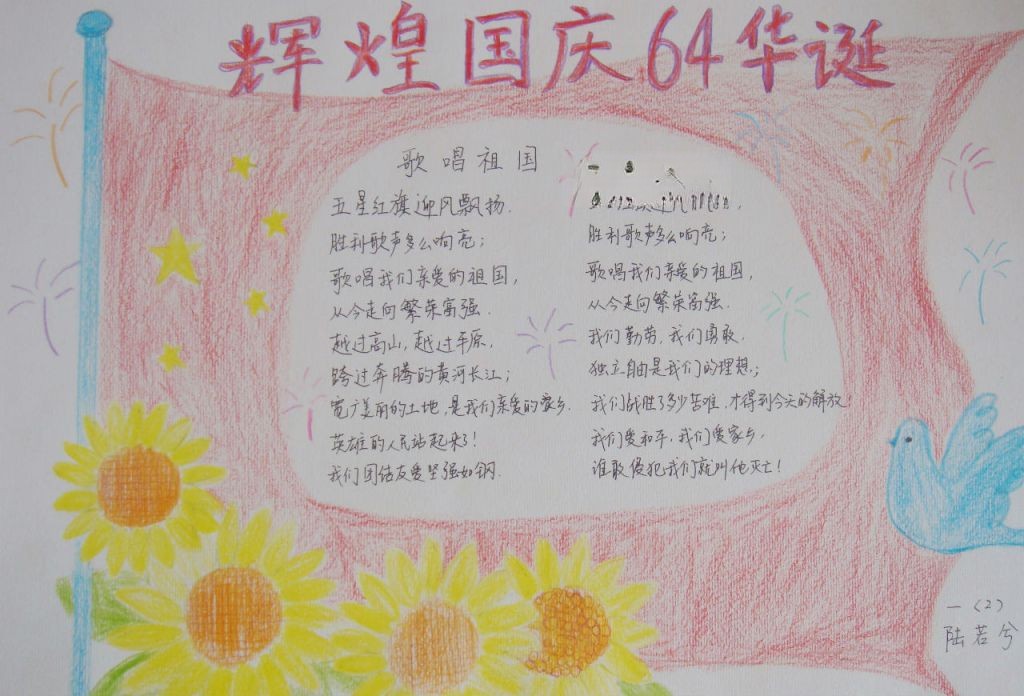 辉煌国庆64华诞
歌唱祖国
五星红旗迎风飘扬.
胜利歌声多么响亮;
歌唱我们亲爱的祖国,
从今走向繁荣富强.
越过高山,越过平原,
跨过奔腾的黄河长江;
宽广美丽的土地,是我们亲爱的家乡.
英雄的人民站起来了!
我们团结友爱坚强如钢.
胜利歌声多么响亮;
歌唱我们亲爱的祖国,
从今走向繁荣富强.
我们勤劳,我们勇敢,
独立自由是我们的理想;
我们战胜了多少苦难,才得到今天的解放!
我们爱和平,我们爱家乡,
谁敢侵犯我们就叫他灭亡!
一(2)
陆若兮